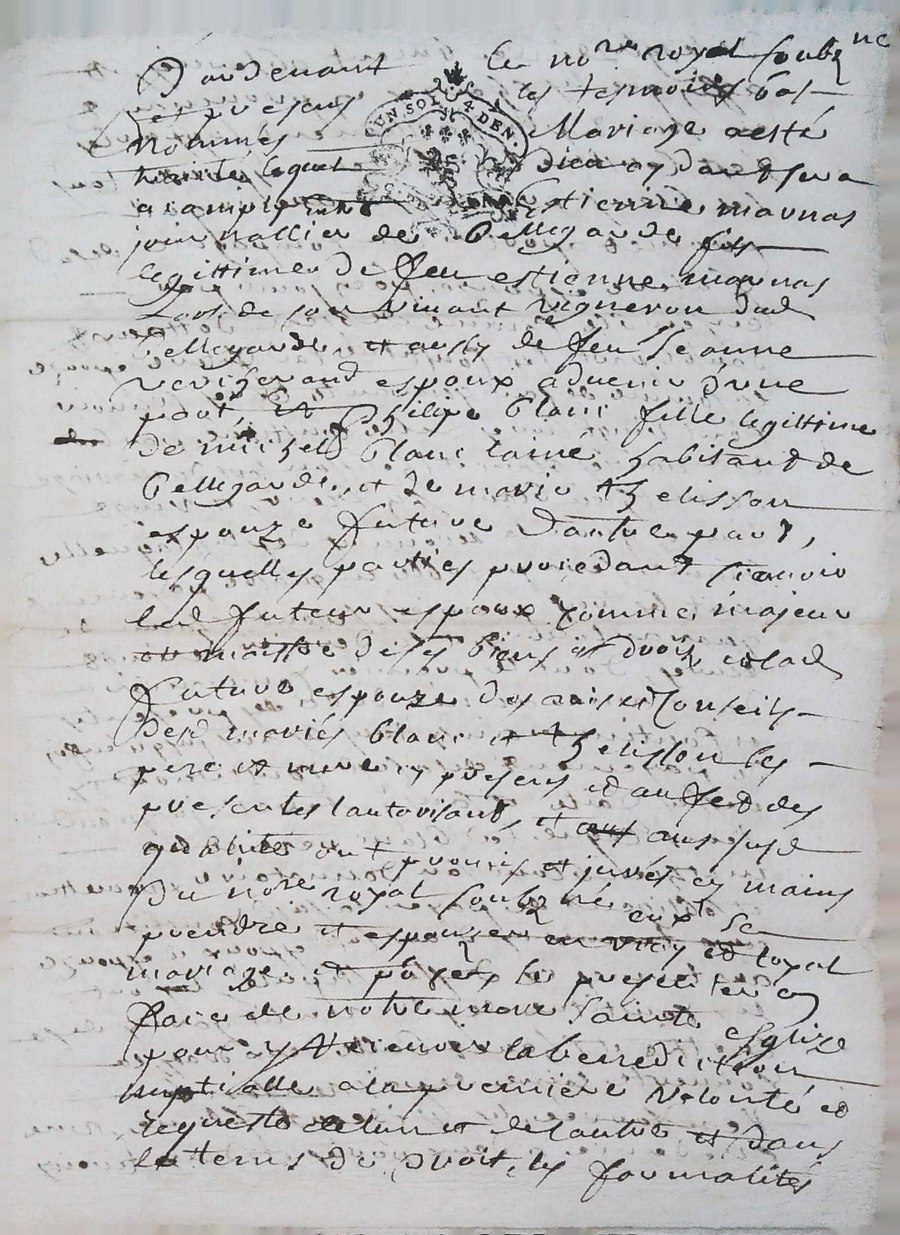 Pardevant le no.re royal soubz.né
et presens les tesmoins bas
nommés Mariage a esté
traité lequel Dieu aydant sera
acomply Entre Estienne maunas
journallier de Bellegarde fils
legittime de feu estienne maunas
Lors de son vivant vigneron dud
Bellegarde, et aussy de feue Jeanne
espoux advenir d'une
part, et Philipe blanc fille legittime
de michel blanc lainé habitant de
bellegarde, et de marie thelisson
espouze future d'autre part,
lesquelles parties procedant scavoir
led futeur espoux comme majeur
et maistre de ses biens et droits et lad
future espouze des avis et Conseils
desd mariés blanc et thelisson les
pere et mere cy presens et au fed des
presentes l'autorisants, et aux susd
qualités ont promis et jurés es mains
Du no.re royal soubz.né eux se
prendre et espouzer en vray et loyal
mariage, et le presenter en
face de notre mere sainte esglize
pour y recevoir la benediction
nuptialle a la premiere volonté et
requeste de l'un et de l'autre et dans
le tems de droit, les formalités
UN SOL 4 DEN.